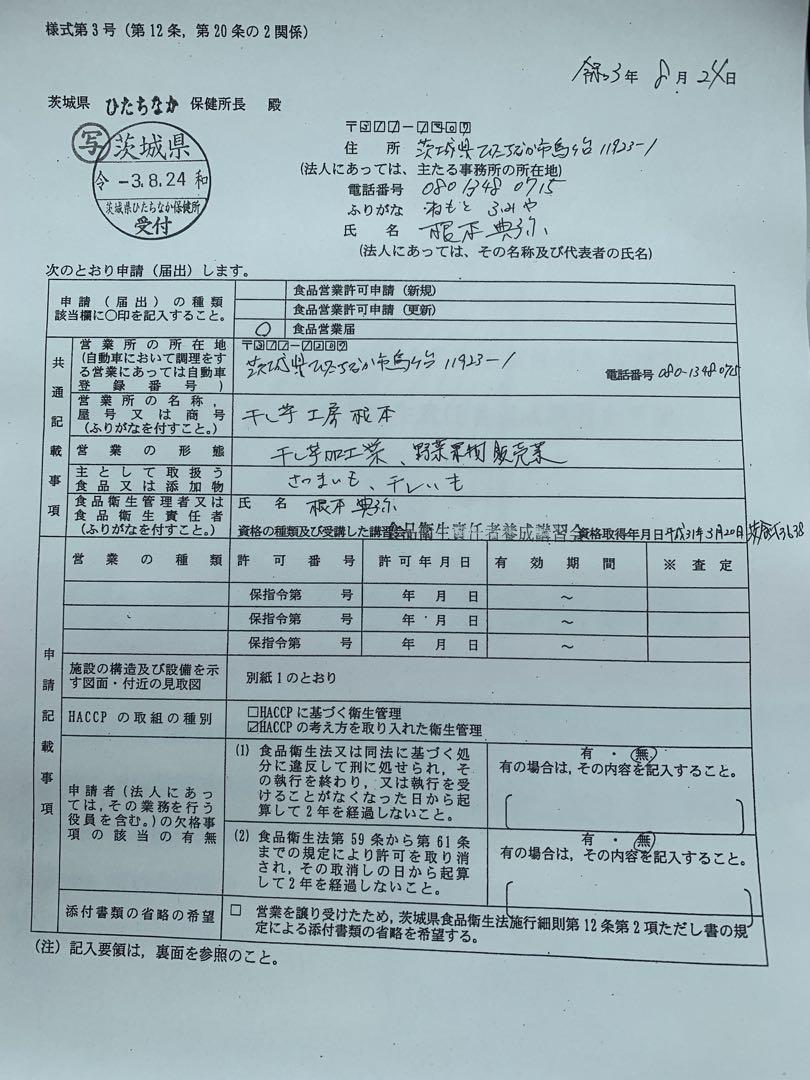 様式第3号（第12条，第20条の2関係）
令和3年 8月 24日
茨城県 ひたちなか 保健所長 殿
写
茨城県
令 -3.8.24 和
茨城県ひたちなか保健所
受付
住所 茨城県ひたちなか市馬渡 11923-1
(法人にあっては、主たる事務所の所在地)
電話番号 080 1348 0715
ふりがな ねもと ふみや
氏名 根本 典弥
(法人にあっては、その名称及び代表者の氏名)
次のとおり申請（届出）します。
申請（届出）の種類
該当欄に○印を記入すること。
食品営業許可申請（新規）
食品営業許可申請（更新）
○ 食品営業届
共通記載事項
営業所の所在地
(自動車において調理をする営業にあっては自動車登録番号)
茨城県ひたちなか市 11923-1
電話番号 080-1348 0715
営業所の名称，
屋号又は商号
(ふりがなを付すこと。)
干し芋工房 根本
営業の形態
干し芋加工業、野菜果物販売業
主として取扱う
食品又は添加物
さつまいも、干しいも
食品衛生管理者又は
食品衛生責任者
(ふりがなを付すこと。)
氏名 根本 典弥
資格の種類及び受講した講習会 食品衛生責任者養成講習会 資格取得年月日 平成31年3月20日
申請記載事項
営業の種類 許可番号 許可年月日 有効期間 ※査定
保指令第 号 年 月 日 ～
保指令第 号 年 月 日 ～
保指令第 号 年 月 日 ～
施設の構造及び設備を示
す図面・付近の見取図
別紙1のとおり
HACCPの取組の種別
□HACCPに基づく衛生管理
☑HACCPの考え方を取り入れた衛生管理
申請者（法人にあっ
ては，その業務を行う
役員を含む。）の欠格事
項の該当の有無
(1) 食品衛生法又は同法に基づく処
分に違反して刑に処せられ，そ
の執行を終わり，又は執行を受
けることがなくなった日から起
算して2年を経過しないこと。
有・無
有の場合は，その内容を記入すること。
(2) 食品衛生法第59条から第61条
までの規定により許可を取り消
され，その取消しの日から起算
して2年を経過しないこと。
有・無
有の場合は，その内容を記入すること。
添付書類の省略の希望
□ 営業を譲り受けたため，茨城県食品衛生法施行細則第12条第2項ただし書の規
定による添付書類の省略を希望する。
(注) 記入要領は，裏面を参照のこと。